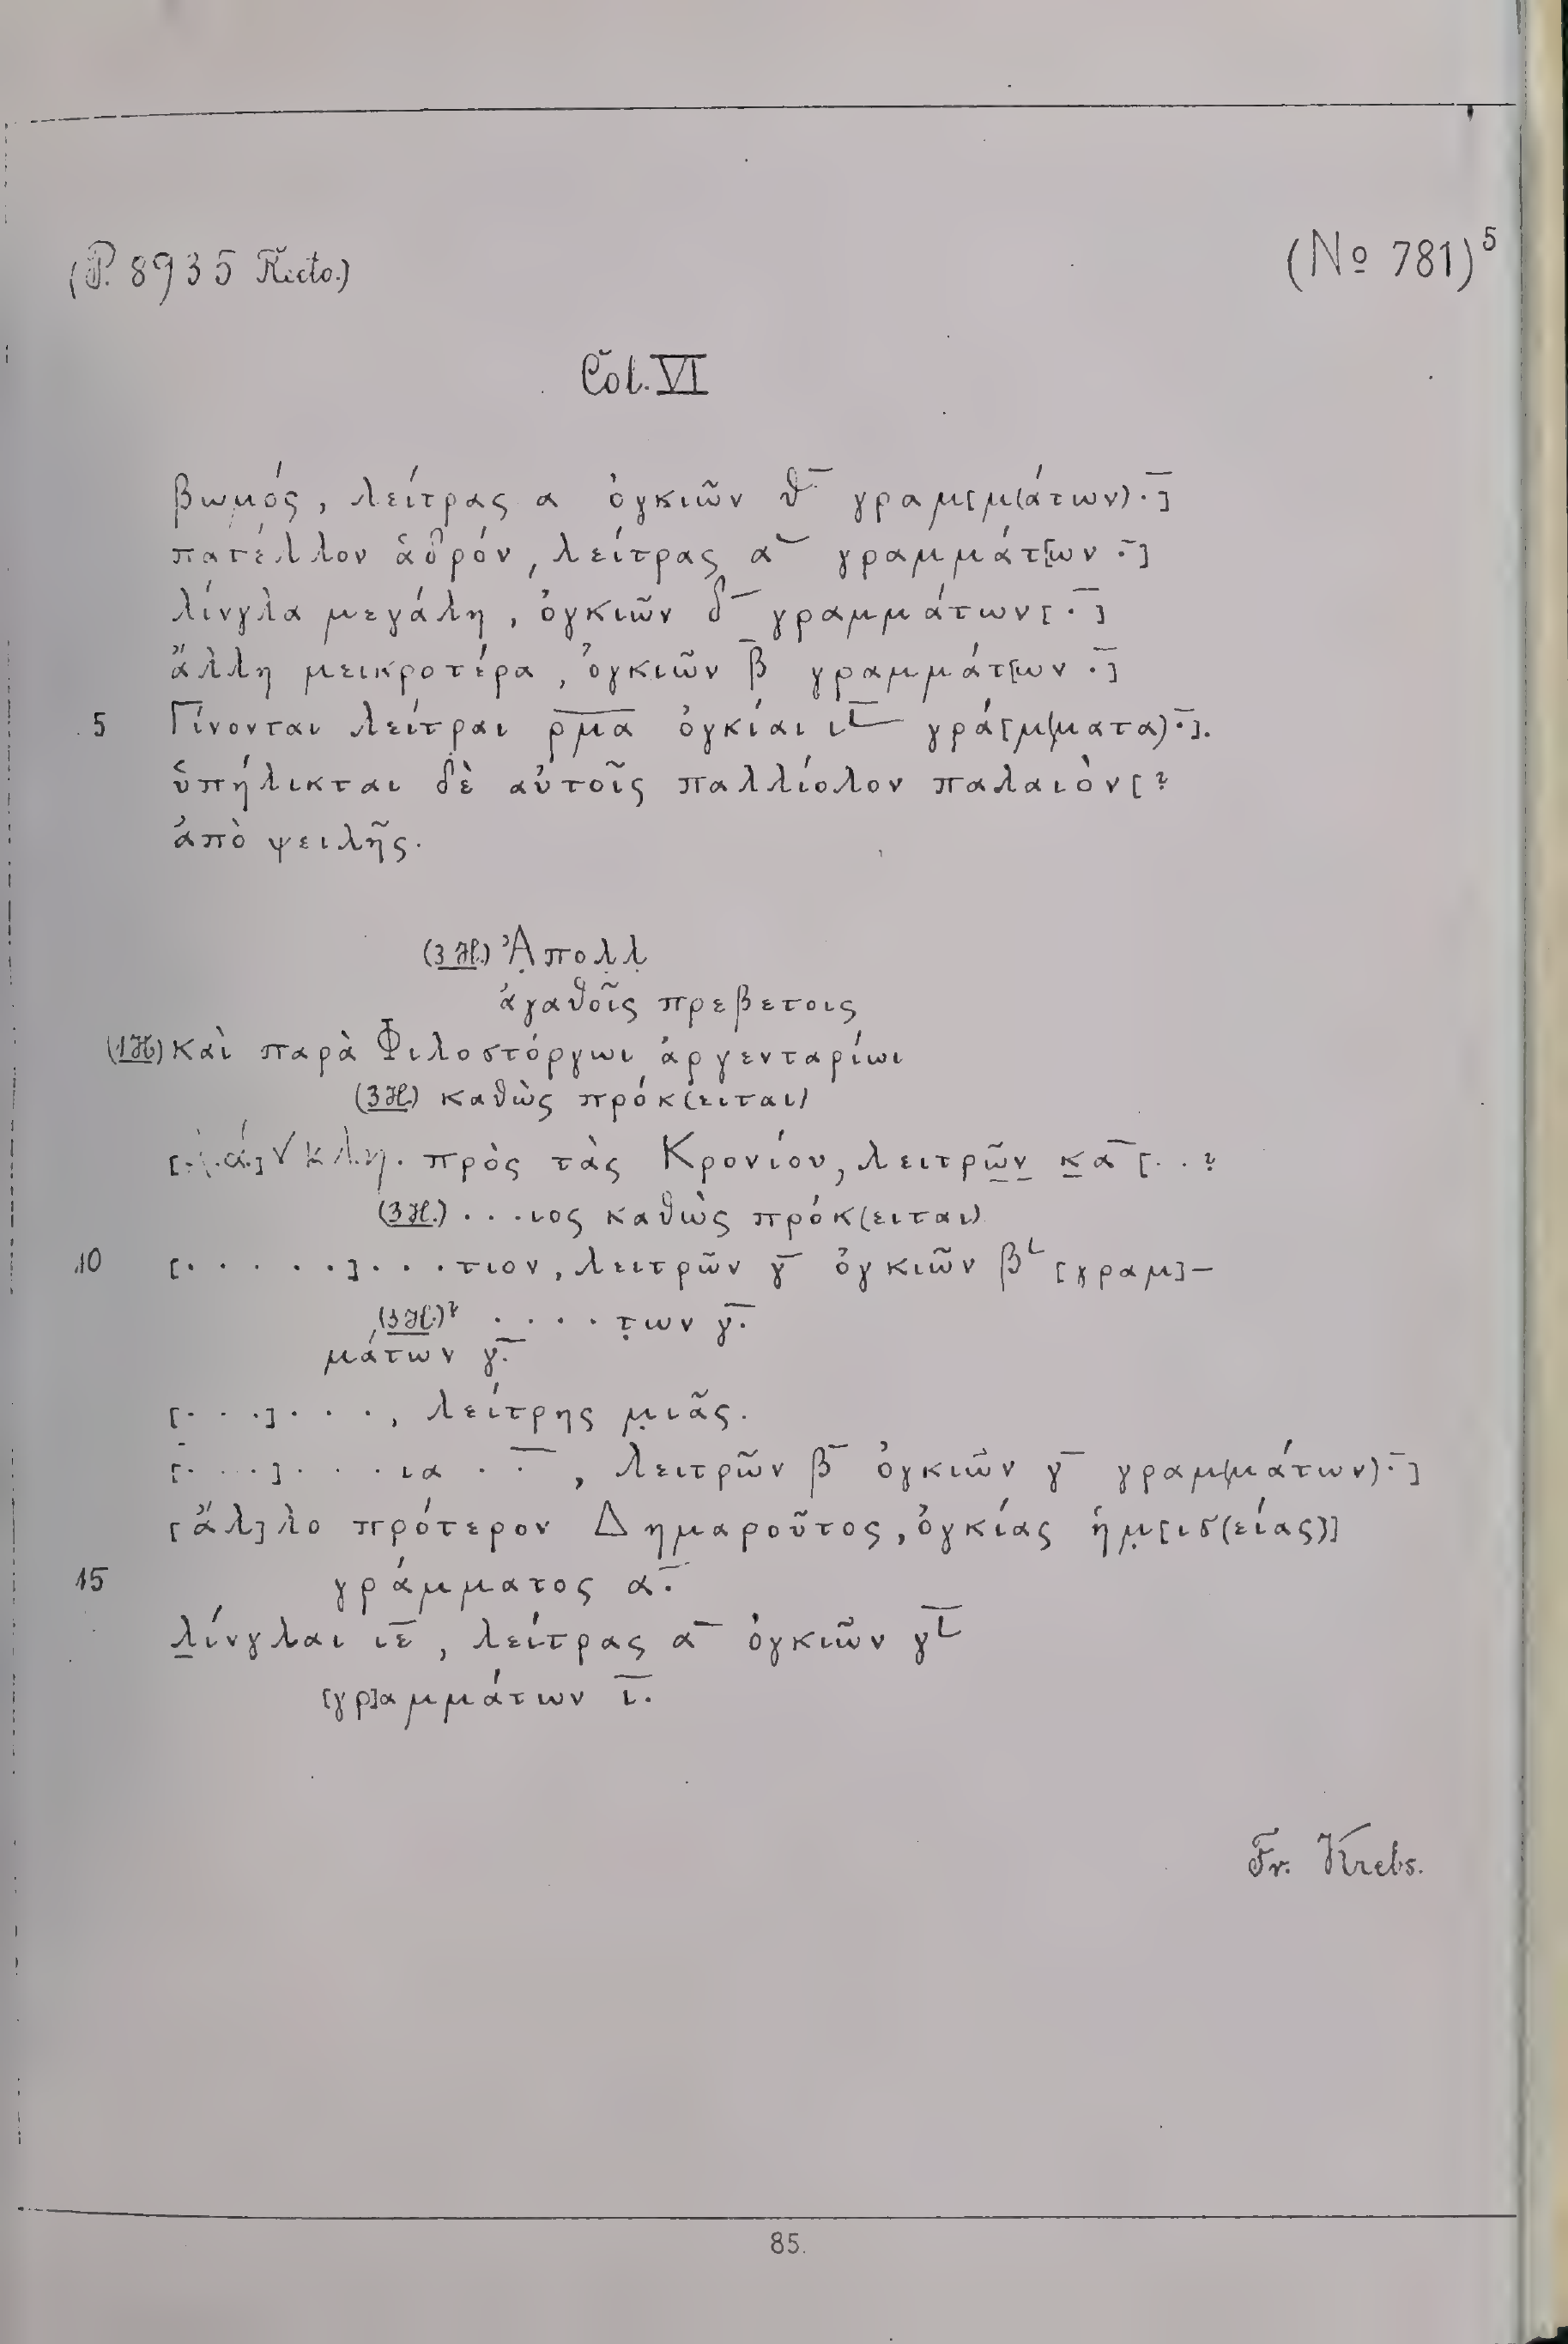 (P. 8935 Recto.)
(No 781)⁵
Col. VI
βωμός, λείτρας α ὀγκιῶν θ̅ γραμ[μ(άτων) .̅]
πατέλλον ἁδρόν, λείτρας α̅ γραμμάτ[ων .̅]
λίνγλα μεγάλη, ὀγκιῶν δ̅ γραμμάτων[ .̅]
ἄλλη μεικροτέρα, ὀγκιῶν β̅ γραμμάτ[ων .̅]
5 Γίνονται λείτραι ρ̅μ̅α̅ ὀγκίαι ι𐅵 γρά[μ(ματα) .̅].
ὑπήλικται δὲ αὐτοῖς παλλίολον παλαιὸν[?
ἀπὸ ψειλῆς.
(3 H.) Ἀ̣πολ̣λ̣
ἀγαθοῖς πρεβετοις
(1 H) καὶ παρὰ Φιλοστόργωι ἀργενταρίωι
(3 H.) καθὼς πρόκ(ειται)
πρὸς τὰς Κρονίου, λειτρῶν κα̅ [. . ?
(3 H.) . . . ιος καθὼς πρόκ(ειται)
10 [. . . . . .] . . . τιον, λειτρῶν γ̅ ὀγκιῶν β𐅵 [γραμ]-
(3 H.)? . . . . τ̣ων γ̅.
μάτων γ̅.
[. . .] . . . , λείτρης μ̣ιᾶς.
[. . . .] . . . ια . .̅ , λειτρῶν β̅ ὀγκιῶν γ̅ γραμ(μάτων) .̅]
[ἄλ]λο πρότερον Δημαροῦτος, ὀγκίας ἡμ̣[ισ(είας)]
15 γράμματος α̅.
λίνγλαι ιε̅, λείτρας α̅ ὀγκιῶν γ𐅵
[γρ]αμμάτων ι̅.
Fr. Krebs.
85.